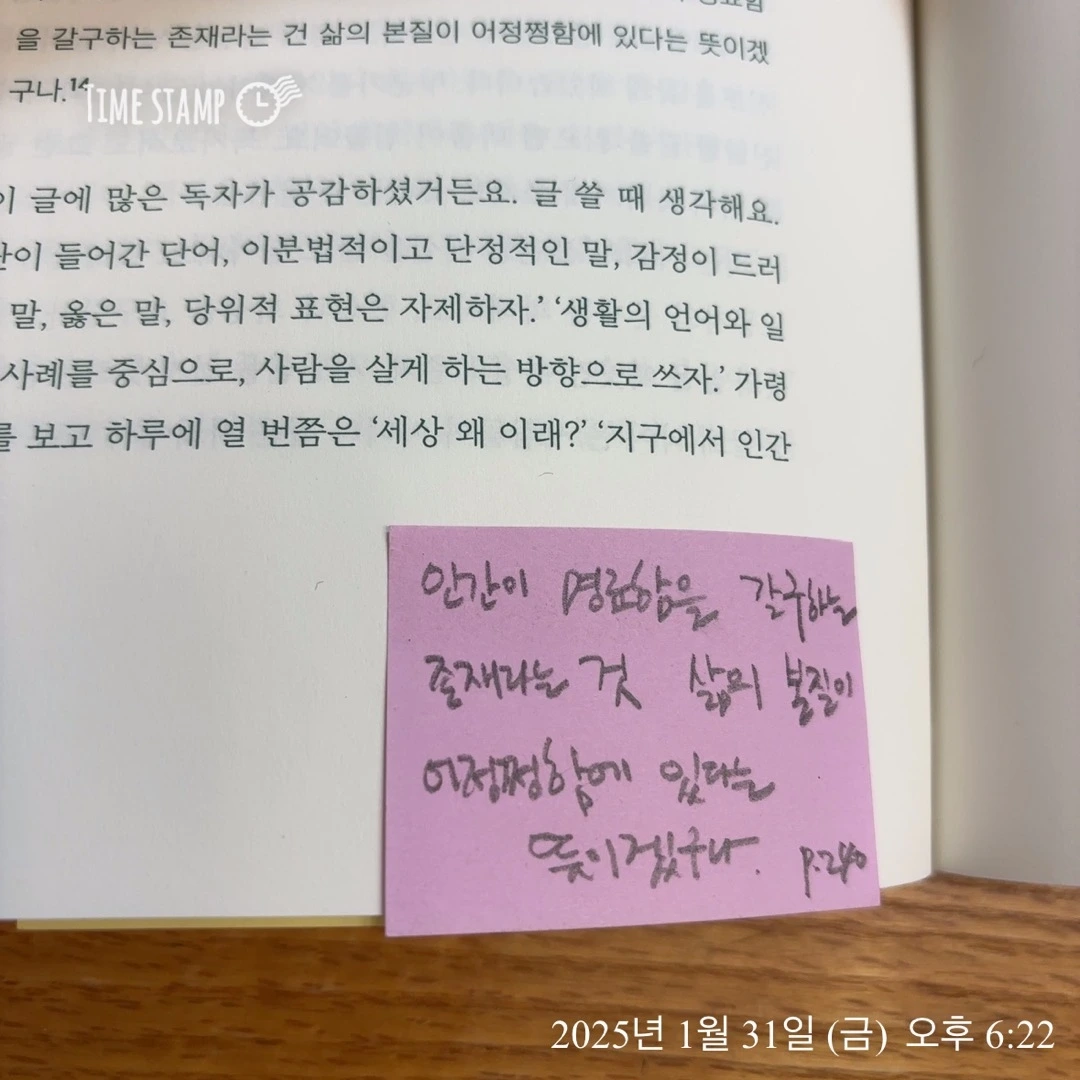 을 갈구하는 존재라는 건 삶의 본질이 어정쩡함에 있다는 뜻이겠
구나.14
TIME STAMP
이 글에 많은 독자가 공감하셨거든요. 글 쓸 때 생각해요.
들어간 단어, 이분법적이고 단정적인 말, 감정이 드러
말, 옳은 말, 당위적 표현은 자제하자.’ ‘생활의 언어와 일
사례를 중심으로, 사람을 살게 하는 방향으로 쓰자.’ 가령
를 보고 하루에 열 번쯤은 ‘세상 왜 이래?’ ‘지구에서 인간
인간이 명료함을 갈구하는
존재라는 것 삶의 본질이
어정쩡함에 있다는
뜻이겠구나. p.240
2025년 1월 31일 (금) 오후 6:22